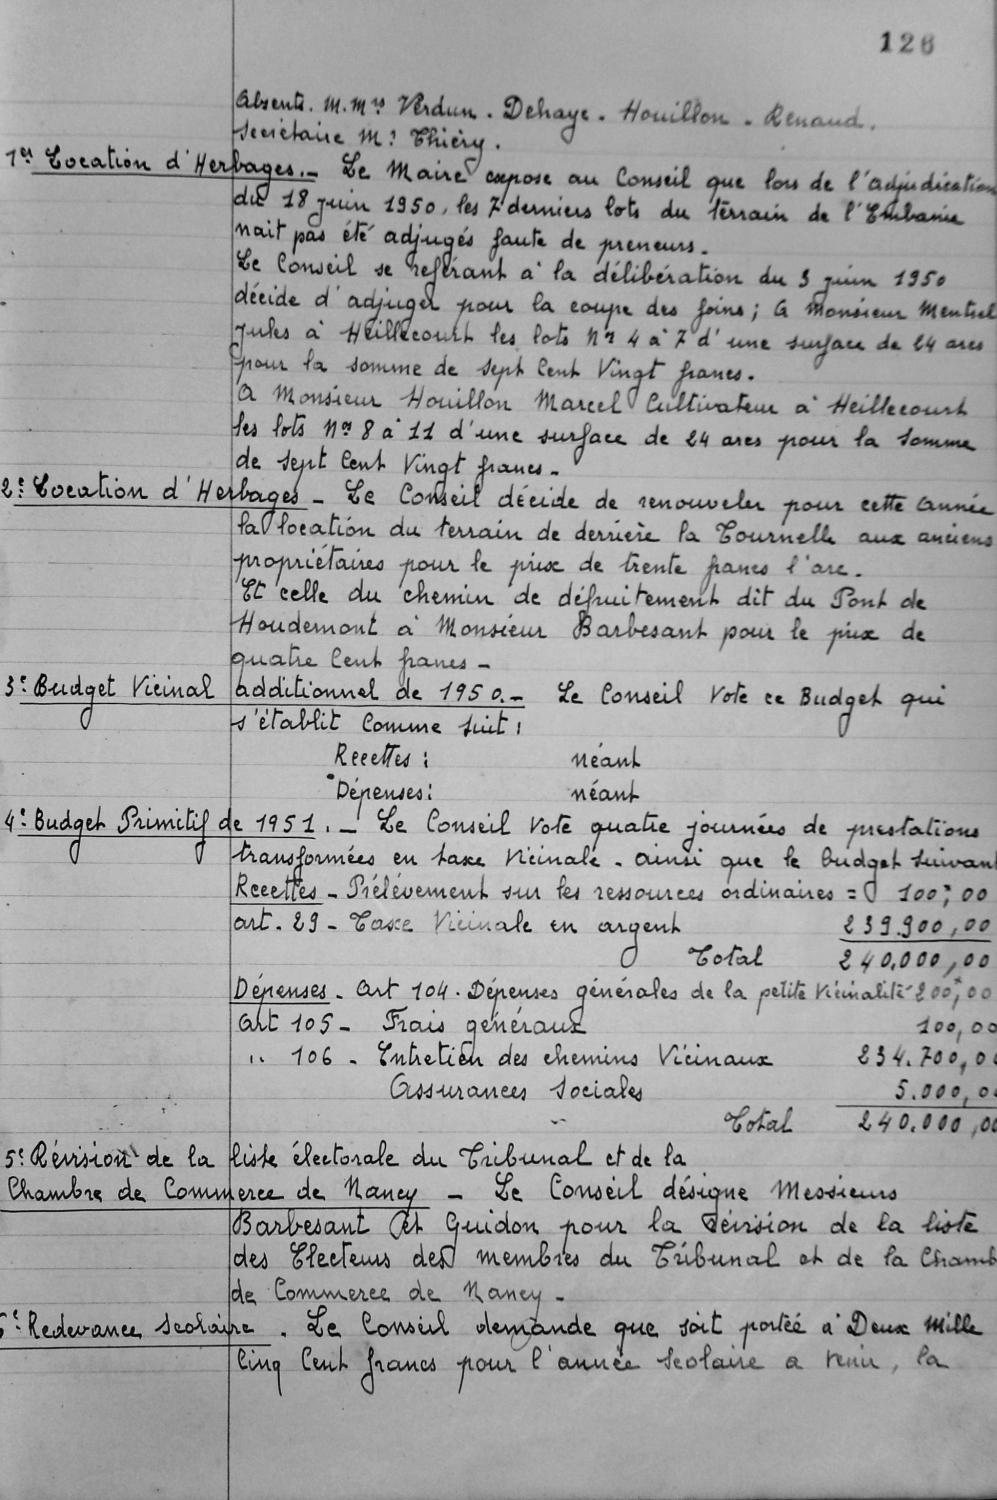 126
Absents. M.Mrs Verdun. Dehaye. Houillon. Renaud.
Secrétaire Mr Thiéry.
1er Location d'Herbages. _ Le Maire expose au Conseil que lors de l'adjudication
du 18 juin 1950, les 7 derniers lots du terrain de l'Embanie
nait pas été adjugés faute de preneurs _
Le Conseil se référant à la délibération du 3 juin 1950
décide d'adjuger pour la coupe des foins ; A Monsieur Mentrel
Jules à Heillecourt les lots Nos 4 à 7 d'une surface de 24 ares
pour la somme de sept Cent Vingt francs.
A Monsieur Houillon Marcel Cultivateur à Heillecourt
les lots Nos 8 à 11 d'une surface de 24 ares pour la somme
de sept Cent Vingt francs _
2e Location d'Herbages _ Le Conseil décide de renouveler pour cette année
la location du terrain de derrière la Tournelle aux anciens
propriétaires pour le prix de trente francs l'are.
Et celle du chemin de défruitement dit du Pont de
Houdemont à Monsieur Barbesant pour le prix de
quatre Cent francs _
3e Budget Vicinal additionnel de 1950. _ Le Conseil Vote ce Budget qui
s'établit Comme suit :
Recettes : néant
Dépenses : néant
4e Budget Primitif de 1951. _ Le Conseil Vote quatre journées de prestations
transformées en taxe Vicinale. ainsi que le budget suivant
Recettes _ Prélèvement sur les ressources ordinaires = 100,00
art. 29 _ Taxe Vicinale en argent 239.900,00
Total 240.000,00
Dépenses _ Art 104. Dépenses générales de la petite Vicinalité 200,00
Art 105 _ Frais généraux 100,00
" 106 _ Entretien des chemins Vicinaux 234.700,00
Assurances Sociales 5.000,00
Total 240.000,00
5e Révision de la liste électorale du Tribunal et de la
Chambre de Commerce de Nancy _ Le Conseil désigne Messieurs
Barbesant et Guidon pour la révision de la liste
des Electeurs des membres du Tribunal et de la Chamb
de Commerce de Nancy _
6e Redevance Scolaire. Le Conseil demande que soit portée à Deux Mille
Cinq Cent francs pour l'année Scolaire a venir, la